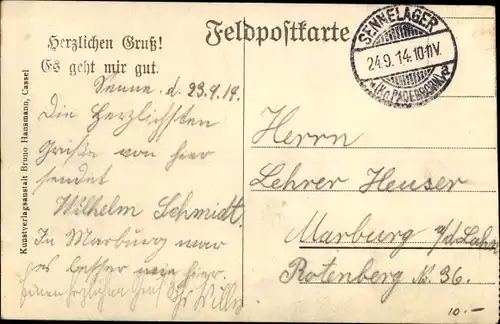 Herzlichen Gruß!
Es geht mir gut.
Feldpostkarte
SENNELAGER
24.9.14.10-11V.
(Kr. PADERBORN)
Kunstverlagsanstalt Bruno Hansmann, Cassel
Senne d. 23.9.14.
Die Herzlichsten
Grüße von hier
sendet
Wilhelm Schmidt.
In Marburg war
es besser wie hier.
Willy
Herrn
Lehrer Heuser
Marburg a/d. Lahn
Rotenberg N. 36.
10.-